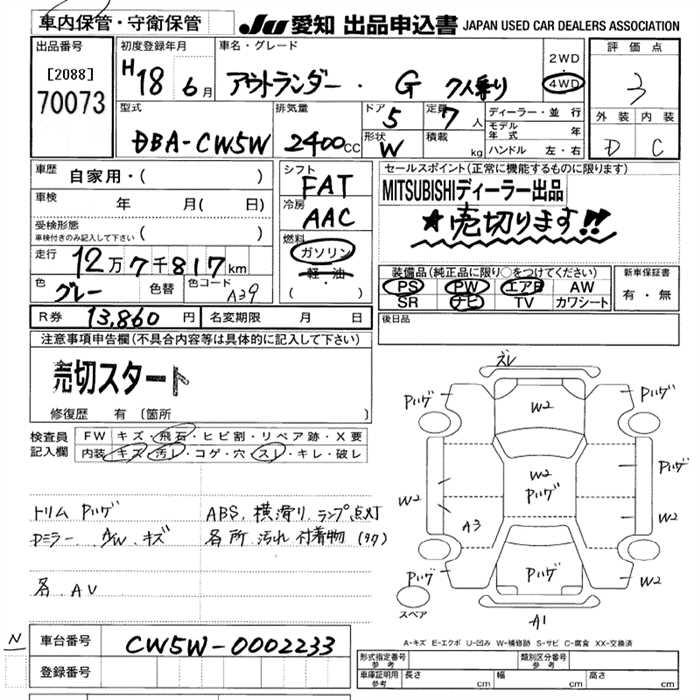 車内保管・守衛保管
JU 愛知 出品申込書 JAPAN USED CAR DEALERS ASSOCIATION
出品番号
[2088]
70073
初度登録年月
H18 6月
車名・グレード
アウトランダー・G 7人乗り
2WD
4WD
評価点
3
型式
DBA-CW5W
排気量
2400CC
ドア
5
定員
7人
形状
W
積載
kg
ディーラー・並行
モデル年式 年
ハンドル 左・右
外装 内装
D C
車歴
自家用・( )
車検
年 月( 日)
受検形態
車検付きのみ記入して下さい ( )
走行
12万7千817km
色
グレー
色替
色コード
A39
シフト
FAT
冷房
AAC
燃料
ガソリン
軽・油
( )
セールスポイント(正常に機能するものに限ります)
MITSUBISHIディーラー出品
★売切ります!!
装備品(純正品に限り○をつけてください)
PS PW エアB AW
SR ナビ TV カワシート
新車保証書
有・無
R券 13,860円
名変期限 月 日
後日品
注意事項申告欄(不具合内容等は具体的に記入して下さい)
売切スタート
修復歴 有〔箇所 〕
検査員記入欄
FW キズ・飛石・ヒビ割・リペア跡・X要
内装 キズ・汚レ・コゲ・穴・スレ・キレ・破レ
トリム Pハゲ
Dミラー、AW、キズ
各AV
ABS、横滑り、ランプ点灯
各所 汚れ 付着物 (タク)
ズレ
Pハゲ
W2
Pハゲ
W2
Pハゲ
Pハゲ
W2
A3
W2
Pハゲ
Pハゲ
W2
スペア
A1
A-キズ E-エクボ U-凹み W-補修跡 S-サビ C-腐食 XX-交換済
N
車台番号
CW5W-0002233
登録番号
形式指定番号
参考
類別区分番号
参考
車庫証明用
参考
長さ cm
幅 cm
高さ cm